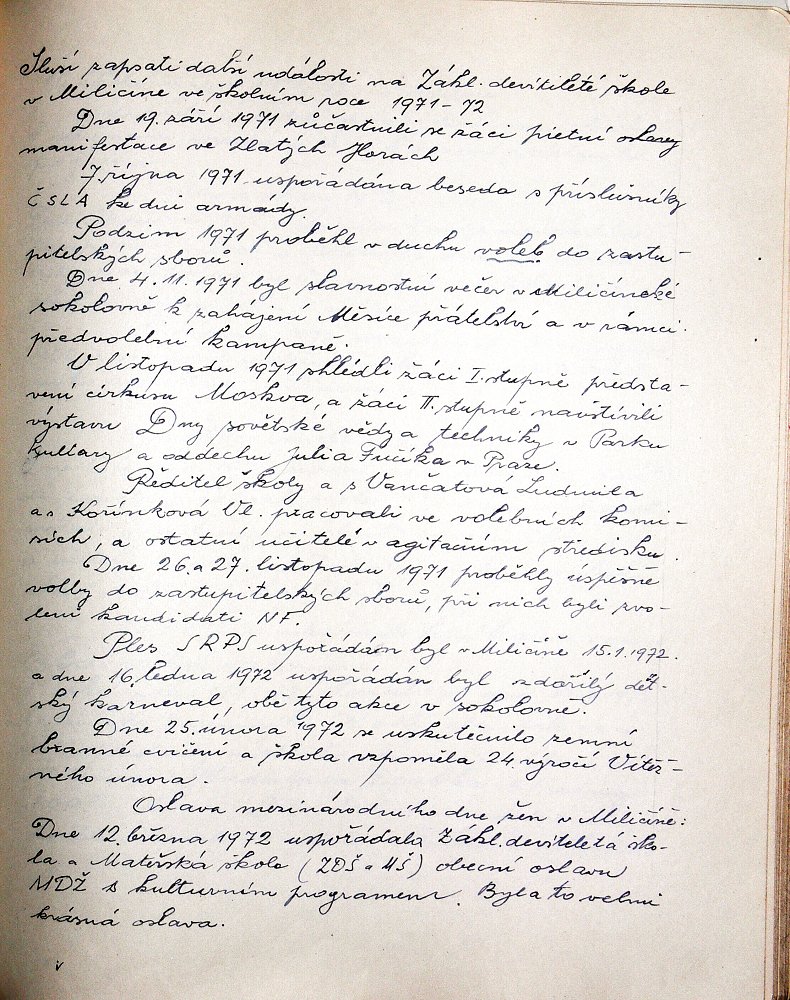 Sluší zapsati další události na Zákl. devítileté škole
v Miličíně ve školním roce 1971-72
Dne 19. září 1971 zúčastnili se žáci pietní oslavy
manifestace ve Zlatých Horách
7. října 1971 uspořádána beseda s příslušníky
ČSLA ke dni armády.
Podzim 1971 proběhl v duchu voleb do zastu-
pitelských sborů.
Dne 4.11.1971 byl slavnostní večer v Miličínské
sokolovně k zahájení Měsíce přátelství a v rámci
předvolební kampaně.
V listopadu 1971 shlédli žáci I. stupně předsta-
vení cirkusu Moskva, a žáci II. stupně navštívili
výstavu Dny sovětské vědy a techniky v Parku
kultury a oddechu Julia Fučíka v Praze.
Ředitel školy a s Vančatová Ludmila
a s Kořínková Vl. pracovali ve volebních komi-
sích, a ostatní učitelé v agitačním středisku.
Dne 26. a 27. listopadu 1971 proběhly úspěšně
volby do zastupitelských sborů, při nich byli zvo-
leni kandidáti NF.
Ples SRPŠ uspořádán byl v Miličíně 15.1.1972.
a dne 16. ledna 1972 uspořádán byl zdařilý dět-
ský karneval, obě tyto akce v sokolovně.
Dne 25. února 1972 se uskutečnilo zemní
branné cvičení a škola vzpoměla 24. výročí Vítěz-
ného února.
Oslava mezinárodního dne žen v Miličíně:
Dne 12. března 1972 uspořádala Zákl. devítiletá ško-
la a Mateřská škola (ZDŠ a MŠ) obecní oslavu
MDŽ s kulturním programem. Byla to velmi
krásná oslava.
v